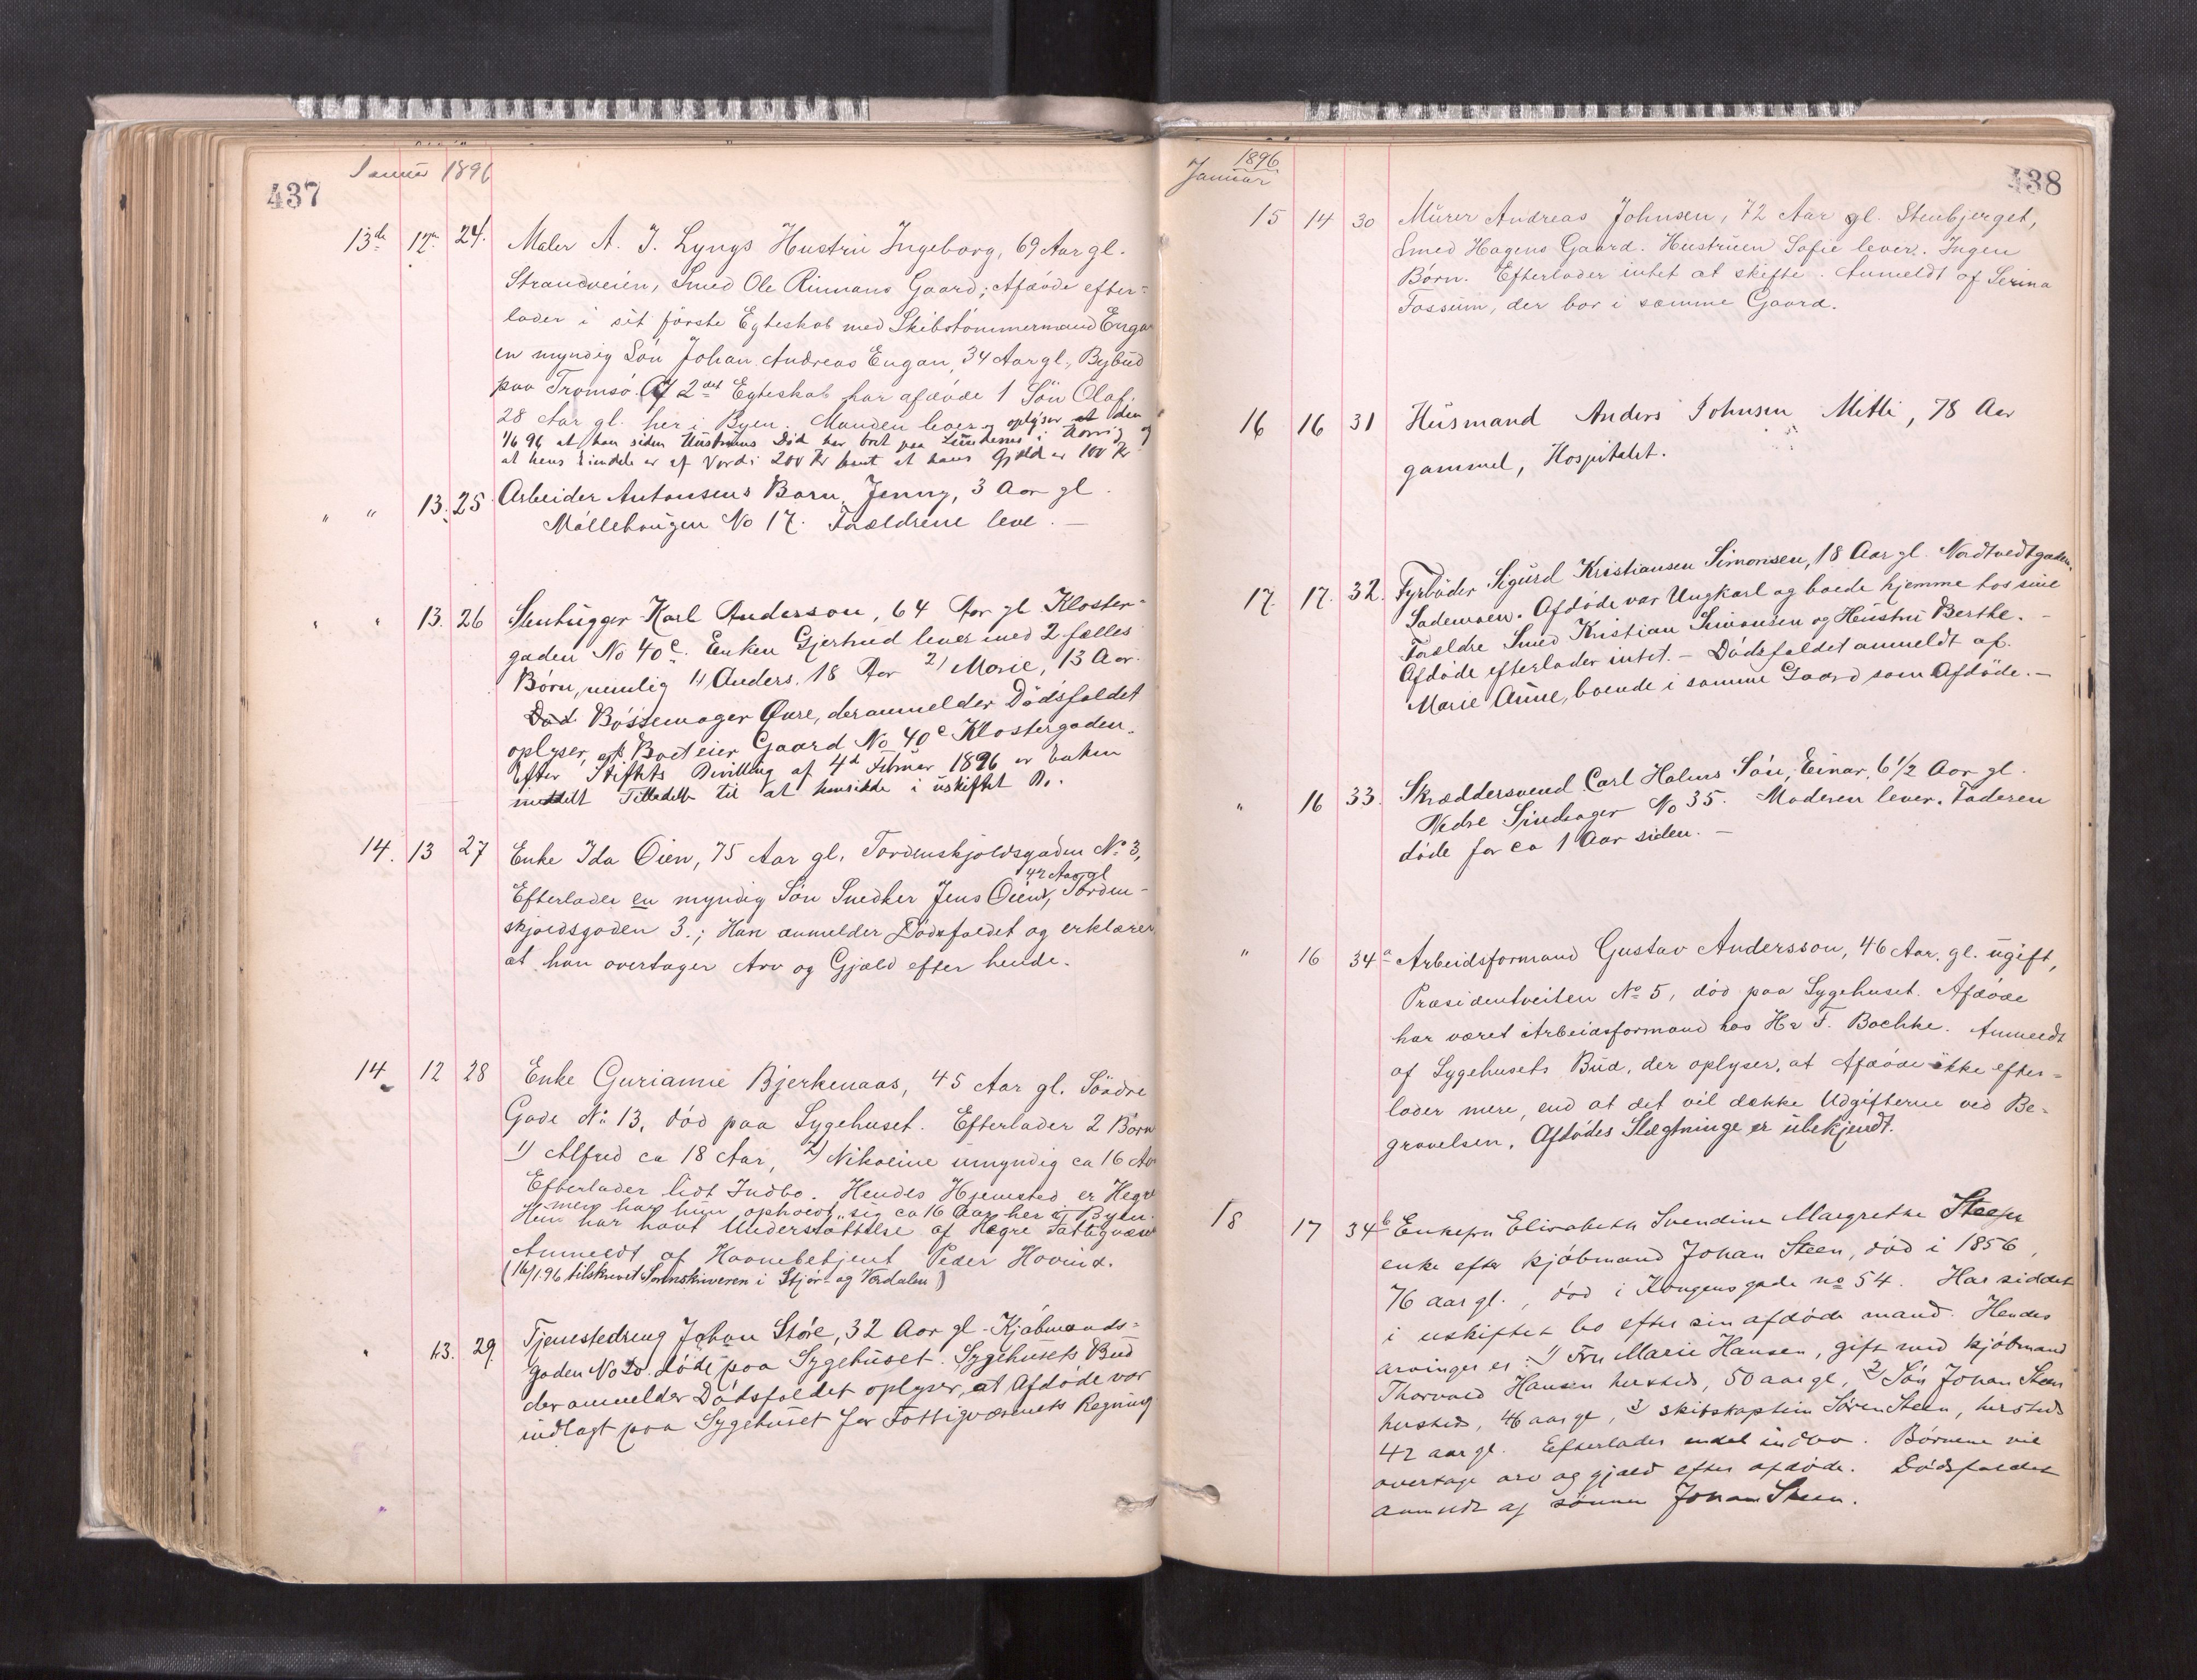 437
Januar 1896
13de 12te 24. Maler A. J. Lyngs Hustru Ingeborg, 69 Aar gl.
Strandveien, Smed Ole Rinnans Gaard; Afdøde efter-
lader i sit første Egteskab med Skibstømmermand Engan
en myndig Søn Johan Andreas Engan, 34 Aar gl., Bybud
paa Tromsø. Af 2det Egteskab har afdøde 1 Søn Olaf,
28 Aar gl. her i Byen. Manden lever og oplyser at den
1/6 96 at han siden Hustruens Død har boet paa i og
at hans Eiendele er af Værdi 200 Kr samt at hans Gjæld er 100 Kr
" " 13. 25. Arbeider Antonsens Barn, Jenny, 3 Aar gl.
Møllebougen No 17. Forældrene leve. —
" " 13. 26 Stenhugger Karl Anderson, 64 Aar gl Kloster-
gaden No 40c. Enken Gjertrud lever med 2 fælles
Børn, nemlig 1) Anders. 18 Aar 2) Marie, 13 Aar.
Død Bøssemager Øvre, der anmelder Dødsfaldet
oplyser, at Boet eier Gaard No 40c Klostergaden.
Efter Stiftets Bevilling af 4de Februar 1896 er Enken
meddelt Tilladelse til at hensidde i uskiftet Bo.
14. 13 27 Enke Ida Øien, 75 Aar gl. Tordenskjoldsgaden No 3,
Efterlader en myndig Søn Snedker Jens Øien, 42 Aar gl Torden-
skjoldsgaden 3.; Han anmelder Dødsfaldet og erklærer
at han overtager Arv og Gjæld efter hende.
14 12 28 Enke Gurianne Bjerkenaas, 45 Aar gl. Søndre
Gade No 13, død paa Sygehuset. Efterlader 2 Børn
1) Alfred ca 18 Aar, 2) Nikoline umyndig ca 16 Aar
Efterlader lidt Indbo. Hendes Hjemsted er Hegre
men har hun opholdt sig ca 16 Aar her i Byen.
Hun har havt Understøttelse af Hegre Fattigvæsen
Anmeldt af Havnebetjent Peder Hovind.
(16/1 96 tilskrevet Sorenskriveren i Stjør og Værdalen)
" 13. 29. Tjenestedreng Johan Støre, 32 Aar gl. Kjøbmands-
gaden No 20. døde paa Sygehuset. Sygehusets Bud
der anmelder Dødsfaldet oplyser, at Afdøde var
indlagt paa Sygehuset for Fattigvæsenets Regning
438
1896
Januar
15 14 30 Murer Andreas Johnsen, 72 Aar gl. Stenbjerget,
Smed Hagens Gaard. Hustruen Sofie lever. Ingen
Børn. Efterlader intet at skifte. Anmeldt af Serina
Fossum, der bor i samme Gaard.
16 16 31 Husmand Anders Johnsen Mitli, 78 Aar
gammel, Hospitalet.
17. 17. 32. Fyrbøder Sigurd Kristiansen Simonsen, 18 Aar gl. Nordtvedtgaden,
Lademoen. Afdøde var Ungkarl og boede hjemme hos sine
Forældre Smed Kristian Simonsen og Hustru Berthe. —
Afdøde efterlader intet. — Dødsfaldet anmeldt af
Marie Aune, boende i samme Gaard som Afdøde. —
" 16 33. Skræddersvend Carl Holms Søn, Einar, 6 1/2 Aar gl.
Nedre Singsager No 35. Moderen lever. Faderen
døde for ca 1 Aar siden. —
" 16 34a Arbeidsformand Gustav Andersson, 46 Aar gl. ugift,
Præsidentveiten No 5, død paa Sygehuset. Afdøde
har været Arbeidsformand hos Hr F. Bachke. Anmeldt
af Sygehusets Bud, der oplyser, at Afdøde ikke efter-
lader mere, end at det vil dække Udgifterne ved Be-
gravelsen. Afdødes Slægtninge er ubekjendt.
18 17 34b Enkefru Elisabeth Svendine Margrethe Steen
enke efter kjøbmand Johan Steen, død i 1856,
76 aar gl., død i Kongens gade no 54. Har siddet
i uskiftet bo efter sin afdøde mand. Hendes
arvinger er: 1) Fru Marie Hansen, gift med kjøbmand
Thorvald Hansen hersteds, 50 aar gl, 2) Søn Johan Steen
hersteds, 46 aar gl, 3) skibskaptein Søren Steen, hersteds
42 aar gl. Efterlader endel indbo. Børnene vil
overtage arv og gjæld efter afdøde. Dødsfaldet
anmeldt af sønnen Johan Steen.